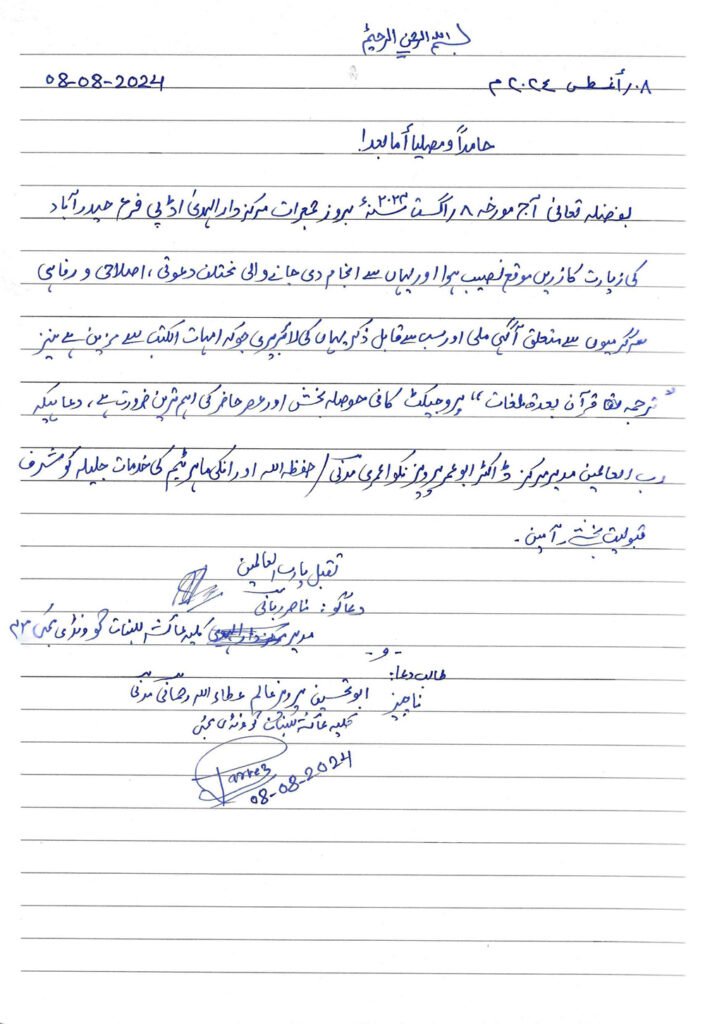 بسم الله الرحمن الرحيم
08-08-2024
۰۸؍أغسطس ۲۰۲٤م
حامداً ومصلیا أما بعد!
بفضلہ تعالیٰ آج مورخہ ۸؍اگست ۲۰۲۴ سنۂ بروز جمعرات مرکز دار الہدیٰ اڈپی فرع حیدرآباد
کی زیارت کا زریں موقع نصیب ہوا اور یہاں سے انجام دی جانے والی مختلف دعوتی، اصلاحی و رفاہی
سرگرمیوں سے متعلق آگہی ملی اور سب سے قابل ذکر یہاں کی لائبریری جوکہ امہات الکتب سے مزین ہے نیز
"ترجمہ قرآن بعدۃ لغات" پروجیکٹ کافی حوصلہ بخش اور عصر حاضر کی اہم ترین ضرورت ہے، دعا ہیکہ
رب العالمین مدیر مرکز ڈاکٹر ابو عمر پرویز نکوا عمری مدنی/حفظہ اللہ اور انکی ماہر ٹیم کی خدمات جلیلہ کو مشرف
قبولیت بخشے۔ آمین۔
تقبل یا رب العالمین
دعاگو: ناصر ربانی
مدیر کلیہ عائشہ للبنات گوونڈی ممبئی ۴۳
-و-
طالب دعا:
ناچیز ابو تحسین پرویز عالم عطاء اللہ رحمانی مدنی
کلیہ عائشہ للبنات گوونڈی ممبئی
Parvez
08-08-2024